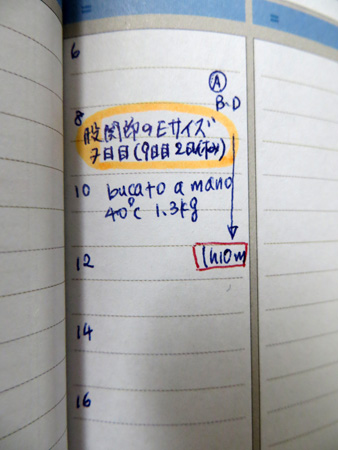 6
Ⓐ
B.D
8
股関節のEサイズ
7日目(9日目2回
10 bucato a mano
40°C 1.3kg
12 1h10m
14
16